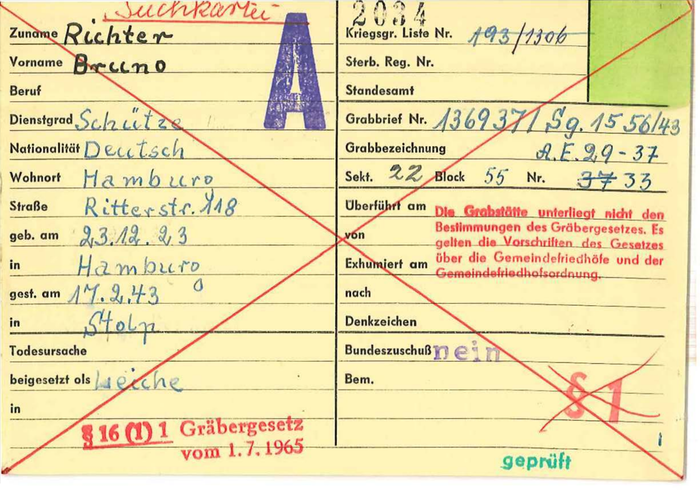 Suchkartei
A
Zuname Richter
Vorname Bruno
Beruf
Dienstgrad Schütze
Nationalität Deutsch
Wohnort Hamburg
Straße Ritterstr. 118
geb. am 23.12.23
in Hamburg
gest. am 17.2.43
in Stolp
Todesursache
beigesetzt als Leiche
in
§ 16 (1) 1 Gräbergesetz
vom 1.7.1965
2034
Kriegsgr. Liste Nr. 193/1306
Sterb. Reg. Nr.
Standesamt
Grabbrief Nr. 136937/Sg. 1556/43
Grabbezeichnung A.E.29-37
Sekt. 22 Block 55 Nr. 37 33
Überführt am
von
Exhumiert am
nach
Die Grabstätte unterliegt nicht den
Bestimmungen des Gräbergesetzes. Es
gelten die Vorschriften des Gesetzes
über die Gemeindefriedhöfe und der
Gemeindefriedhofsordnung.
Denkzeichen
Bundeszuschuß nein
Bem.
§ 1
geprüft